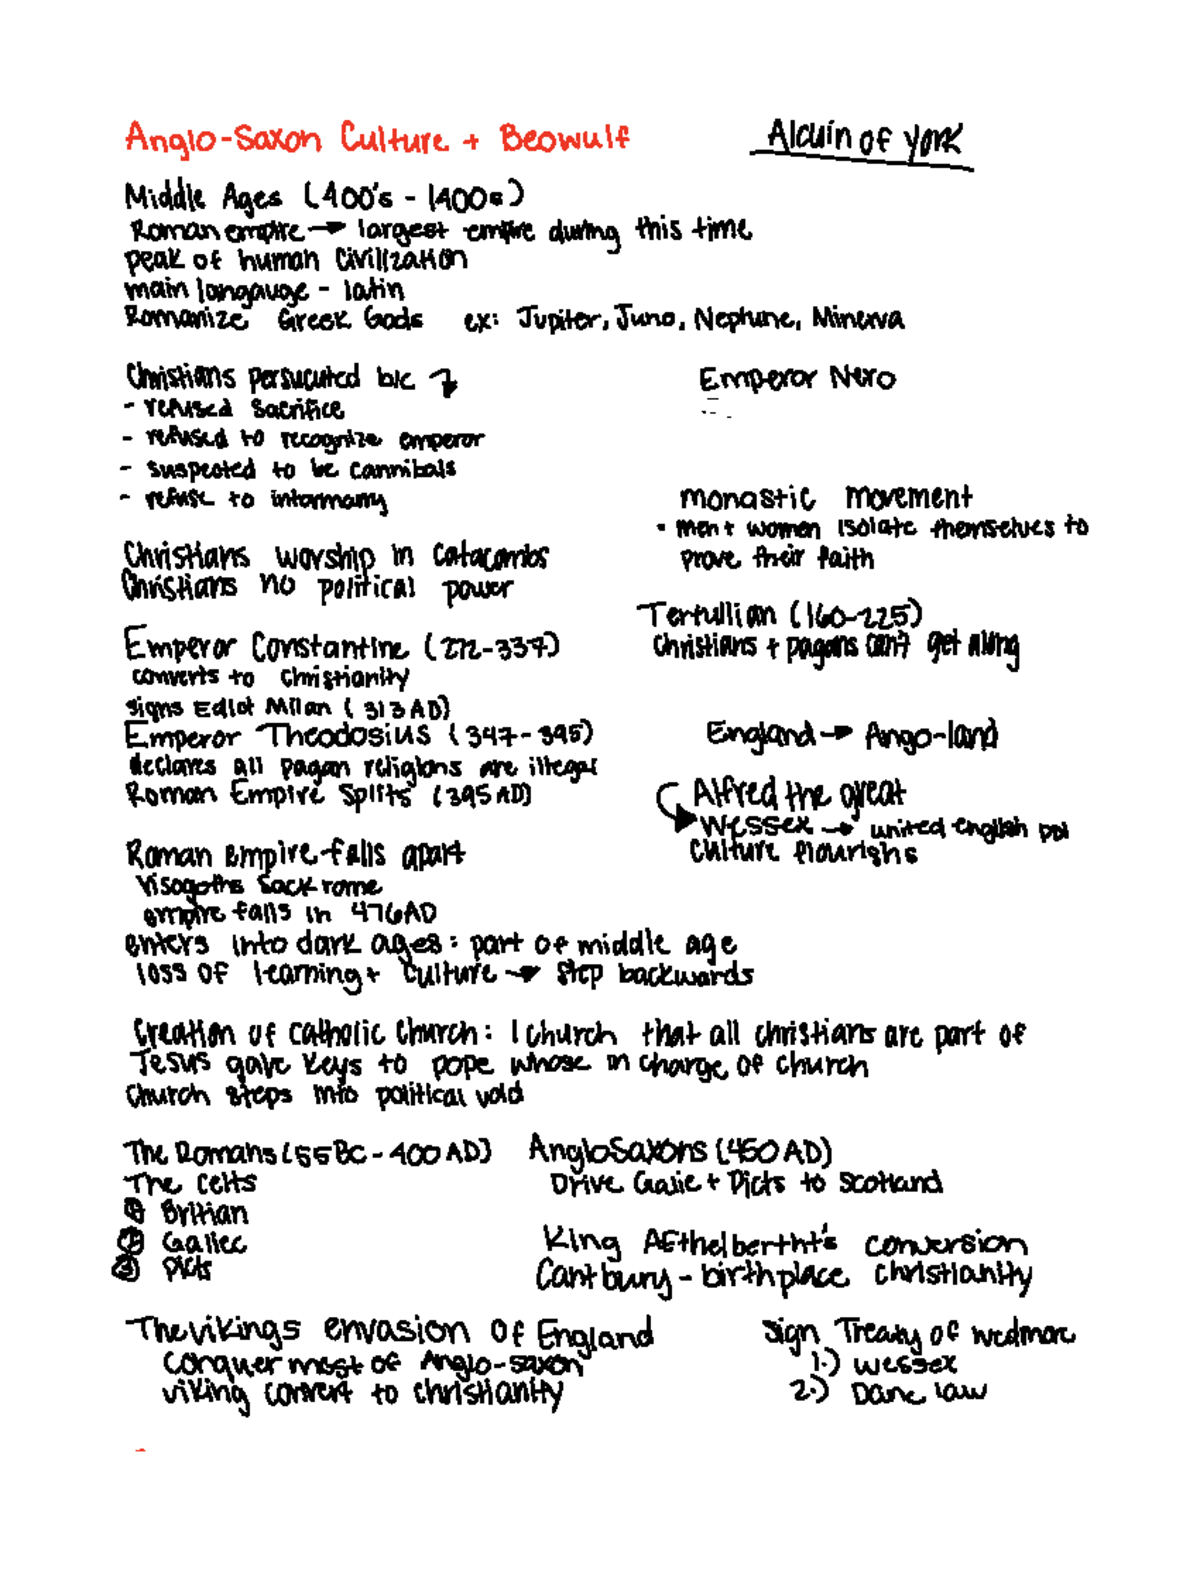 Anglo-Saxon Culture + Beowulf
Alcuin of york
Middle Ages (400's - 1400s)
Roman empire → largest empire during this time
peak of human civilization
main langauge - latin
Romanize Greek Gods ex: Jupiter, Juno, Neptune, Minerva
Christians persucuted b/c
- refused sacrifice
- refused to recognize emperor
- suspected to be cannibals
- refuse to intermarry
Emperor Nero
monastic movement
- men + women isolate themselves to
prove their faith
Christians worship in catacombs
Christians no political power
Tertullian (160-225)
christians + pagans can't get along
Emperor Constantine (272-337)
converts to christianity
signs Edict Milan (313 AD)
Emperor Theodosius (347-395)
declares all pagan religions are illegal
Roman Empire Splits (395 AD)
England → Ango-land
Alfred the great
Wessex → united english
culture flourishs
Roman empire falls apart
Visogoths sack rome
empire falls in 476 AD
enters into dark ages: part of middle age
loss of learning + culture → step backwards
Creation of catholic church: 1 church that all christians are part of
Jesus gave keys to pope whose in charge of church
church steps into political void
The Romans (55 BC - 400 AD)
The celts
1 Britian
2 Gallec
3 Picts
AngloSaxons (450 AD)
Drive Galic + Picts to Scotland
King AEthelbertht's conversion
Cantbury - birthplace christianity
The vikings envasion of England
conquer most of Anglo-saxon
viking convert to christianity
sign Treaty of wedmore
1.) wessex
2.) Dane law